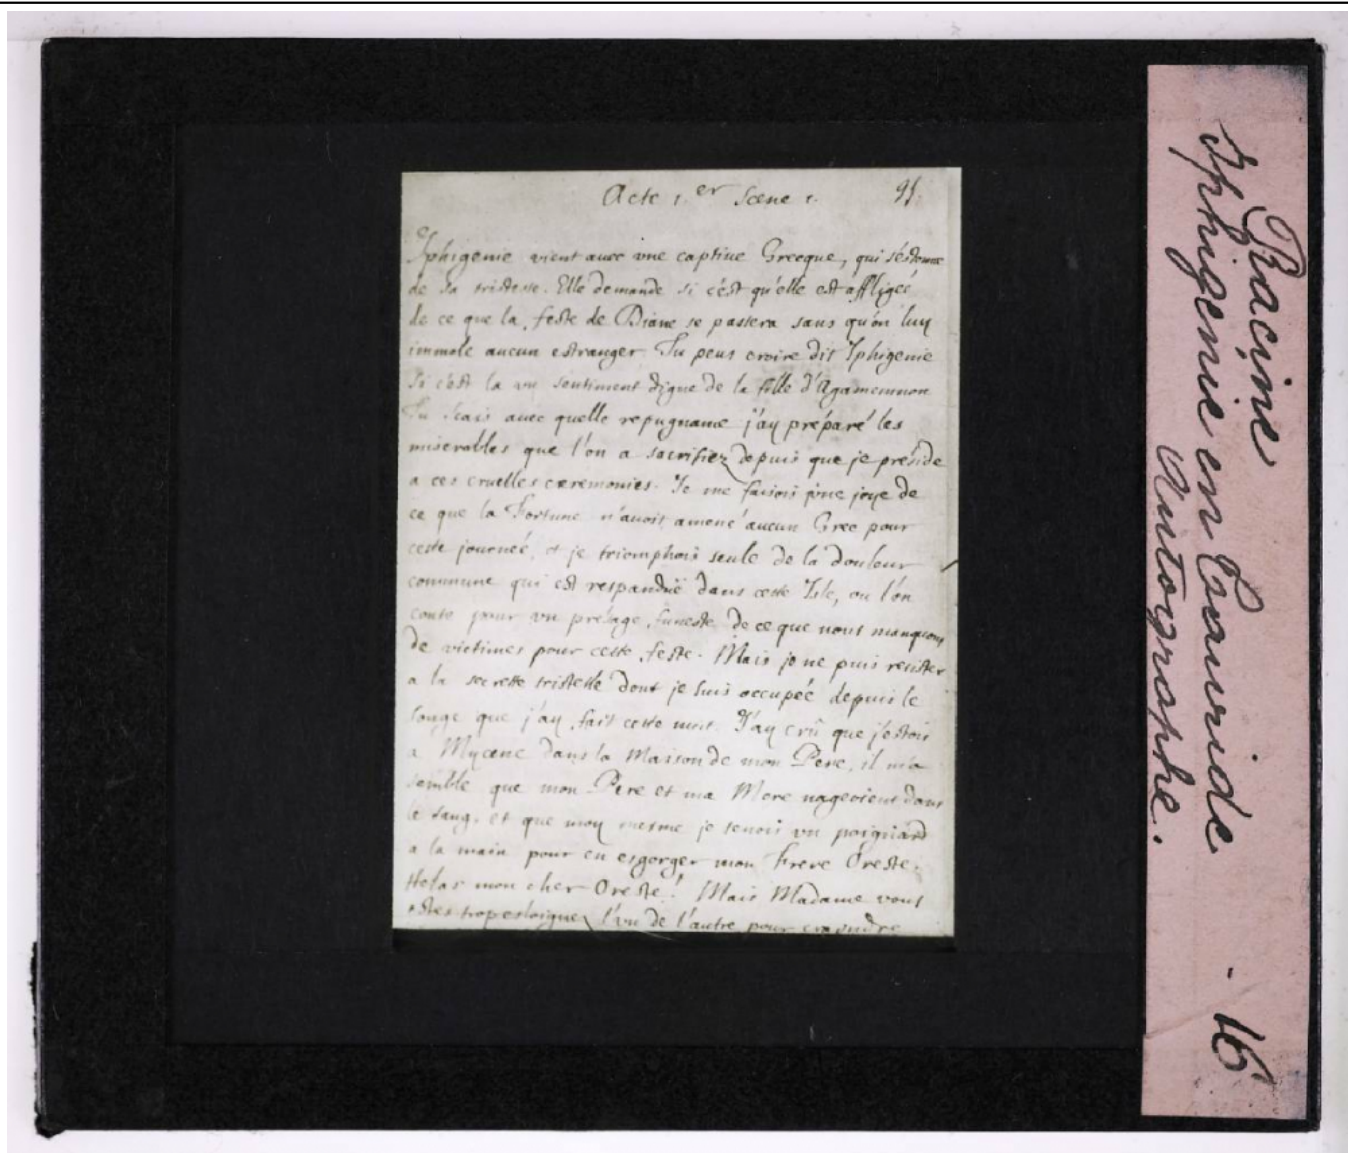 Acte 1.er Scene 1. 95.
Iphigenie vient auec vne captiue Grecque, qui s'estonne
de sa tristesse. Elle demande si c'est qu'elle est affligée
de ce que la feste de Diane se passera sans qu'on luy
immole aucun estranger. Tu peus croire dit Iphigenie
si c'est la vn sentiment digne de la fille d'Agamemnon
Tu scais auec quelle repugnance j'ay préparé les
miserables que l'on a sacrifiez depuis que je preside
a ces cruelles cæremonies. Je me faisois vne joye de
ce que la Fortune n'auoit amené aucun Grec pour
cette journée, et je triomphois seule de la douleur
commune qui est respanduë dans cette Isle, ou l'on
conte pour vn présage funeste de ce que nous manquons
de victimes pour cette feste. Mais je ne puis resister
a la secrette tristesse dont je suis occupée depuis le
songe que j'ay fait cette nuit. J'ay crû que j'estois
a Mycene dans la Maison de mon Pere, il m'a
semblé que mon Pere et ma Mere nageoient dans
le sang, et que moy mesme je tenois vn poignard
a la main pour en esgorger mon Frere Oreste.
Helas mon cher Oreste! Mais Madame vous
estes trop esloignez l'vn de l'autre pour craindre
Racine
Iphigenie en Tauride
Autographe.
- 16